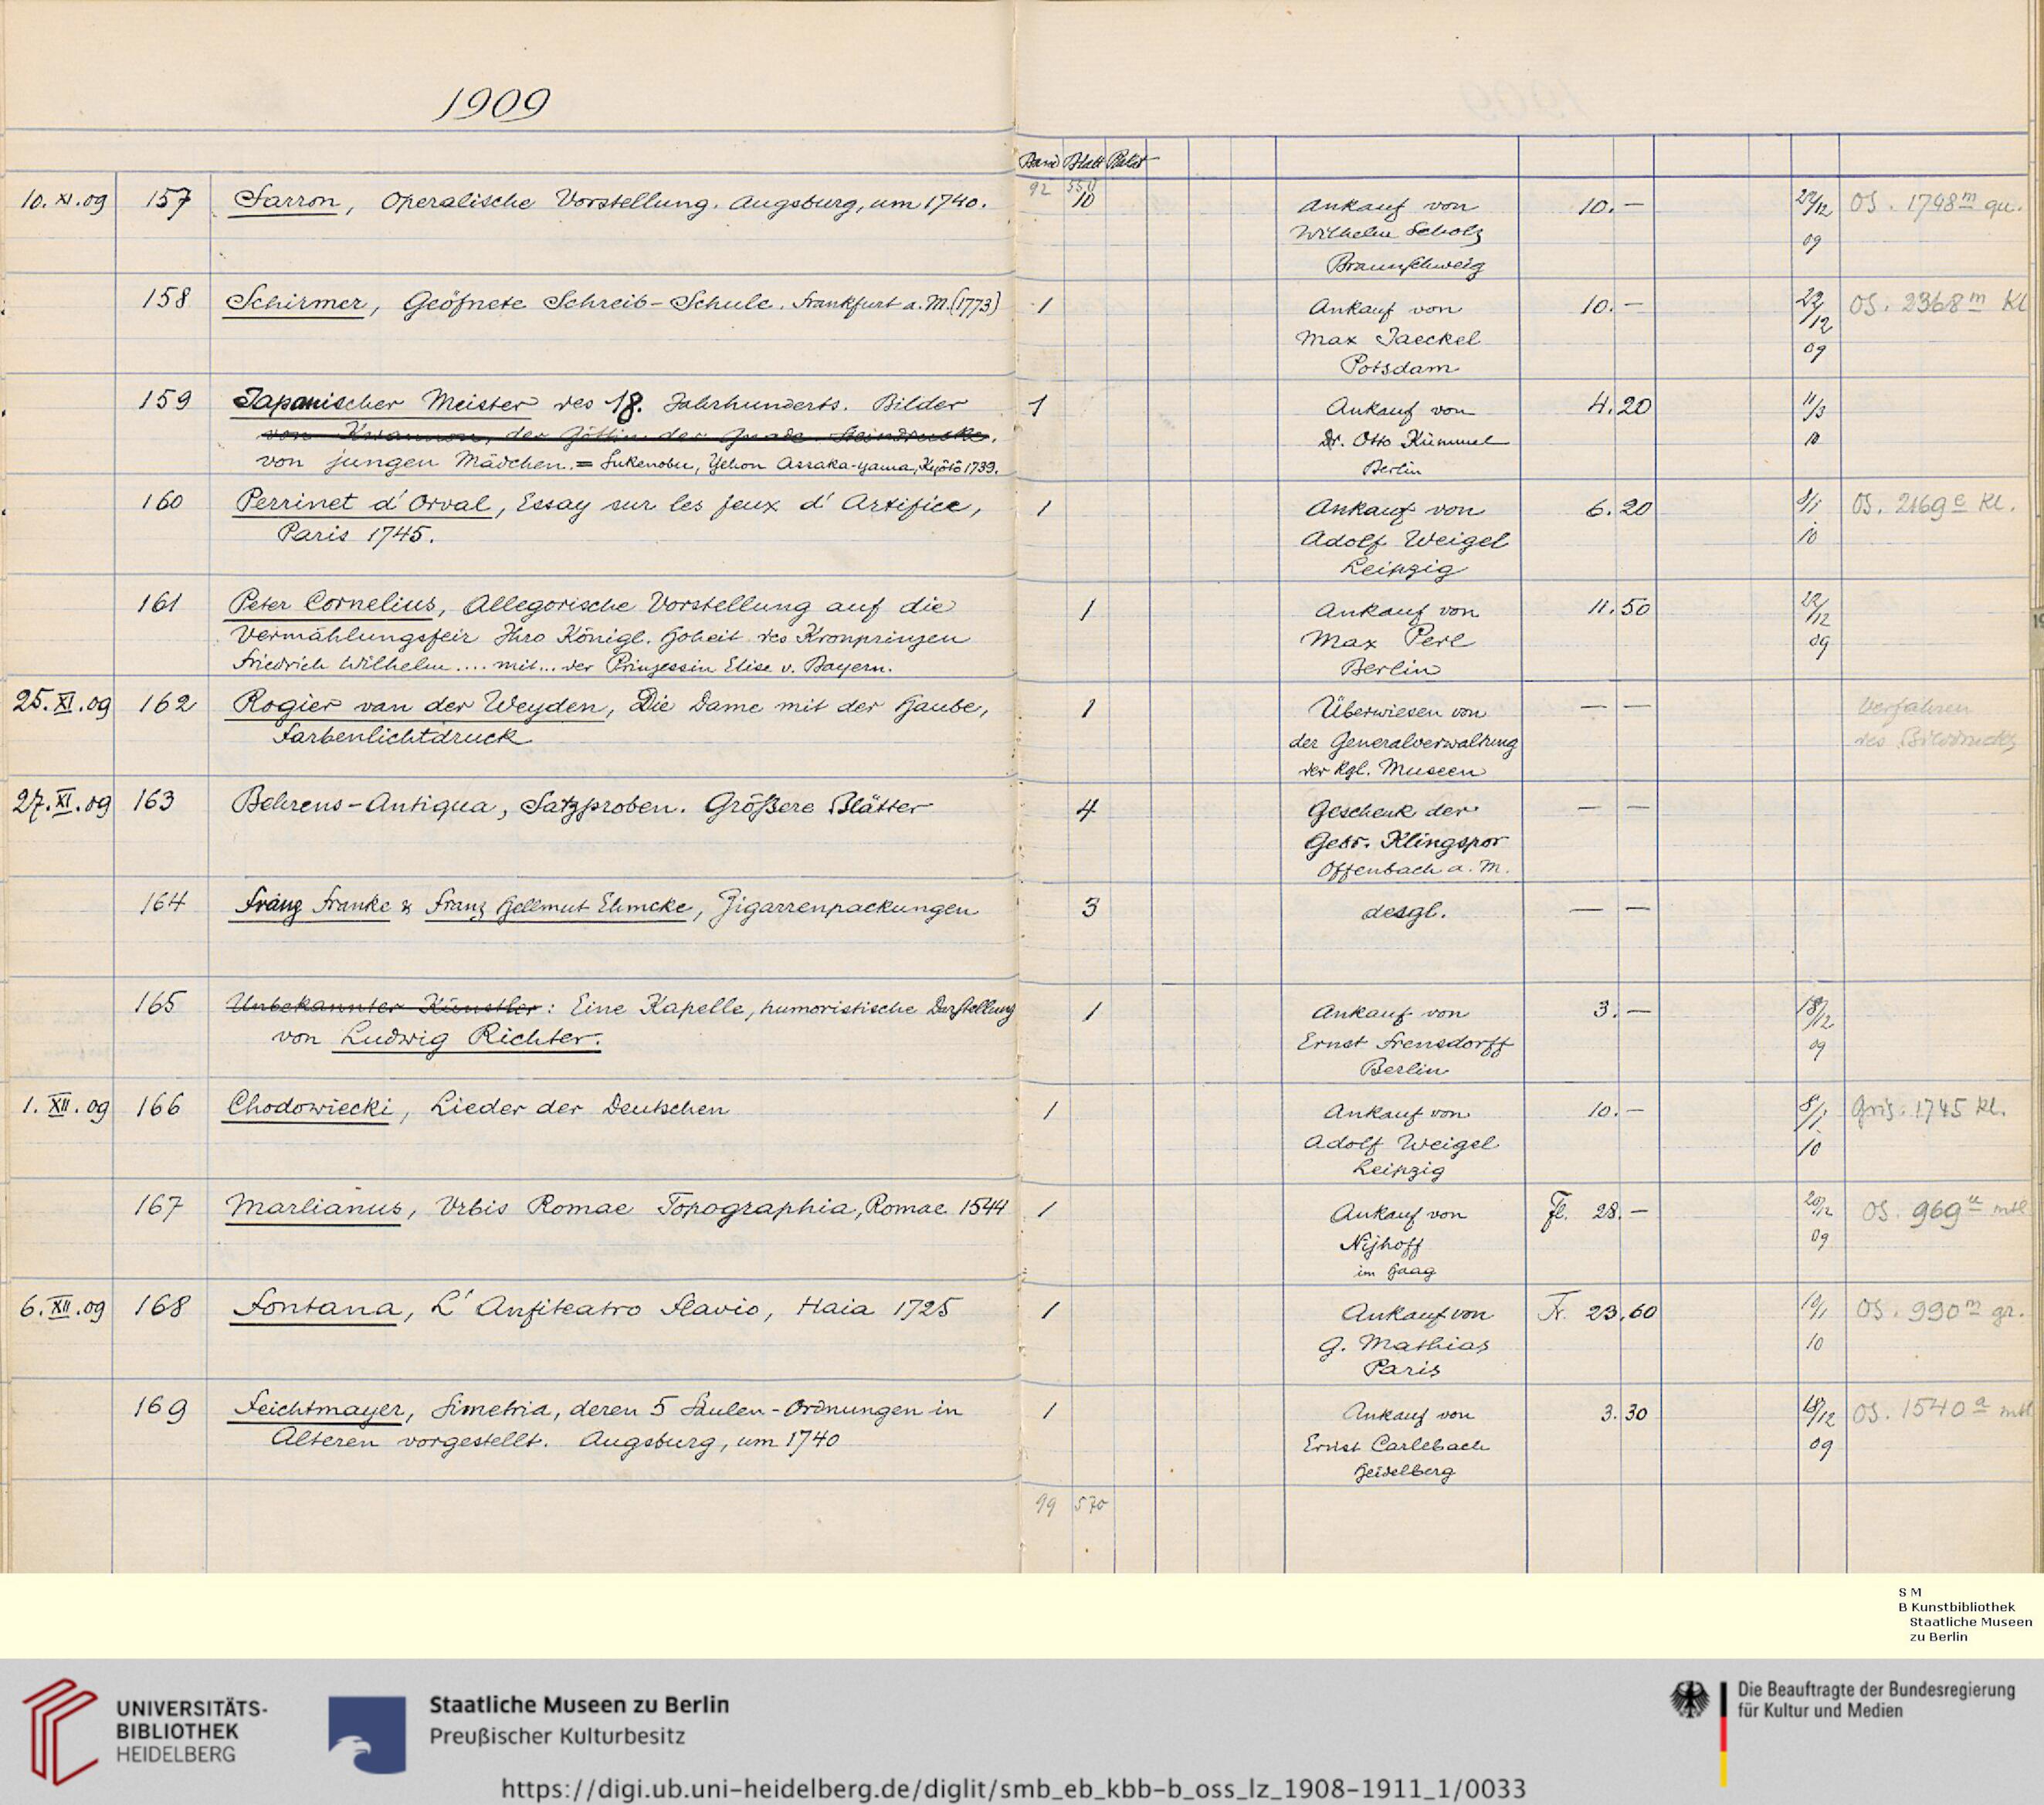 1909
Band Blatt Paket
92 550
10. XI. 09 157 Sarron, Operalische Vorstellung. Augsburg, um 1740. 10 Ankauf von 10. — 22/12 OS. 1798 m qu.
Wilhelm Scholz 09
Braunschweig
158 Schirmer, Geöfnete Schreib-Schule. Frankfurt a. M. (1773) 1 Ankauf von 10. — 22/12 OS. 2368 m Kl
Max Jaeckel 09
Potsdam
159 Japanischer Meister des 18. Jahrhunderts. Bilder 1 Ankauf von 4. 20 11/3
von Kwannon, der Göttin der Gnade. Steindrucke. Dr. Otto Kümmel 10
von jungen Mädchen. = Sukenobu, Yehon Assaka-yama, Kyōtō 1739. Berlin
160 Perrinet d' Orval, Essay sur les feux d' Artifice, 1 Ankauf von 6. 20 8/1 OS. 2169 e Kl.
Paris 1745. Adolf Weigel 10
Leipzig
161 Peter Cornelius, Allegorische Vorstellung auf die 1 Ankauf von 11. 50 22/12
Vermählungsfeir Ihro Königl. Hoheit des Kronprinzen Max Perl 09
Friedrich Wilhelm .... mit ... der Prinzessin Elise v. Bayern. Berlin
25. XI. 09 162 Rogier van der Weyden, Die Dame mit der Haube, 1 Überwiesen von — — Verfahren
Farbenlichtdruck der Generalverwaltung des Bilddrucks
der Kgl. Museen
27. XI. 09 163 Behrens-Antiqua, Satzproben. Größere Blätter 4 Geschenk der — —
Gebr. Klingspor
Offenbach a. M.
164 Franz Franke & Franz Hellmut Ehmcke, Zigarrenpackungen 3 desgl. — —
165 Unbekannter Künstler: Eine Kapelle, humoristische Darstellung 1 Ankauf von 3. — 18/12
von Ludwig Richter. Ernst Frensdorff 09
Berlin
1. XII. 09 166 Chodowiecki, Lieder der Deutschen 1 Ankauf von 10. — 8/1 Gris. 1745 kl.
Adolf Weigel 10
Leipzig
167 Marlianus, Urbis Romae Topographia, Romae 1544 1 Ankauf von Fl. 28. — 20/12 OS. 969 u mtl
Nijhoff 09
im Haag
6. XII. 09 168 Fontana, L' Anfiteatro Flavio, Haia 1725 1 Ankauf von Fr. 23. 60 10/1 OS. 990 m gr.
G. Mathias 10
Paris
169 Feichtmayer, Simetria, deren 5 Säulen-Ordnungen in 1 Ankauf von 3. 30 18/12 OS. 1540 a mtl
Alteren vorgestellt. Augsburg, um 1740 Ernst Carlebach 09
Heidelberg
99 570
S M
B Kunstbibliothek
Staatliche Museen
zu Berlin
UNIVERSITÄTS-
BIBLIOTHEK
HEIDELBERG
Staatliche Museen zu Berlin
Preußischer Kulturbesitz
Die Beauftragte der Bundesregierung
für Kultur und Medien
https://digi.ub.uni-heidelberg.de/diglit/smb_eb_kbb-b_oss_lz_1908-1911_1/0033